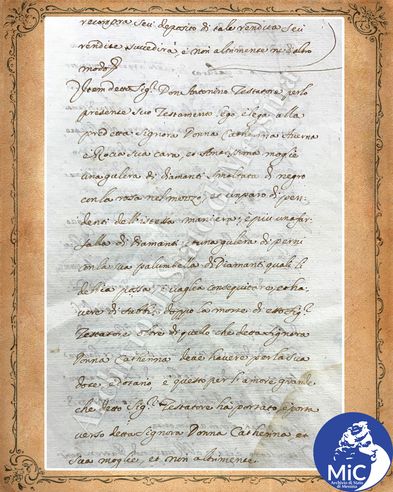 recompra seu deposito di tale vendita seu
vendite succederà e non altimente ne d'altro
modo
Item detto Sig.r Don Antonino Testatore per lo
presente suo Testamento lego, e lega alla
predetta Signora Donna Catherina
e Rocio sua cara, et Amatissima moglie
una gulera di diamanti smaltata di negro
con la rosa nel menzo, e un paro di pen-
denti dell'istessa maniera, e più una far-
falla di diamanti, e una gulera di perni
con la sua palumbella di Diamanti quali li
debbia possa, e vaglia consequitare et ha-
vere di subbito doppo la morte di esso Sig.r
Testatore oltre di quello che detta Signora
Donna Catherina deve havere per la sua
dote, e dotario e questo per l'amore grande
che detto Sig.r Testatore ha portato, e porta
verso detta Signora Donna Catherina et
sua moglie, et non altimente
MiC
Archivio di Stato
di Messina